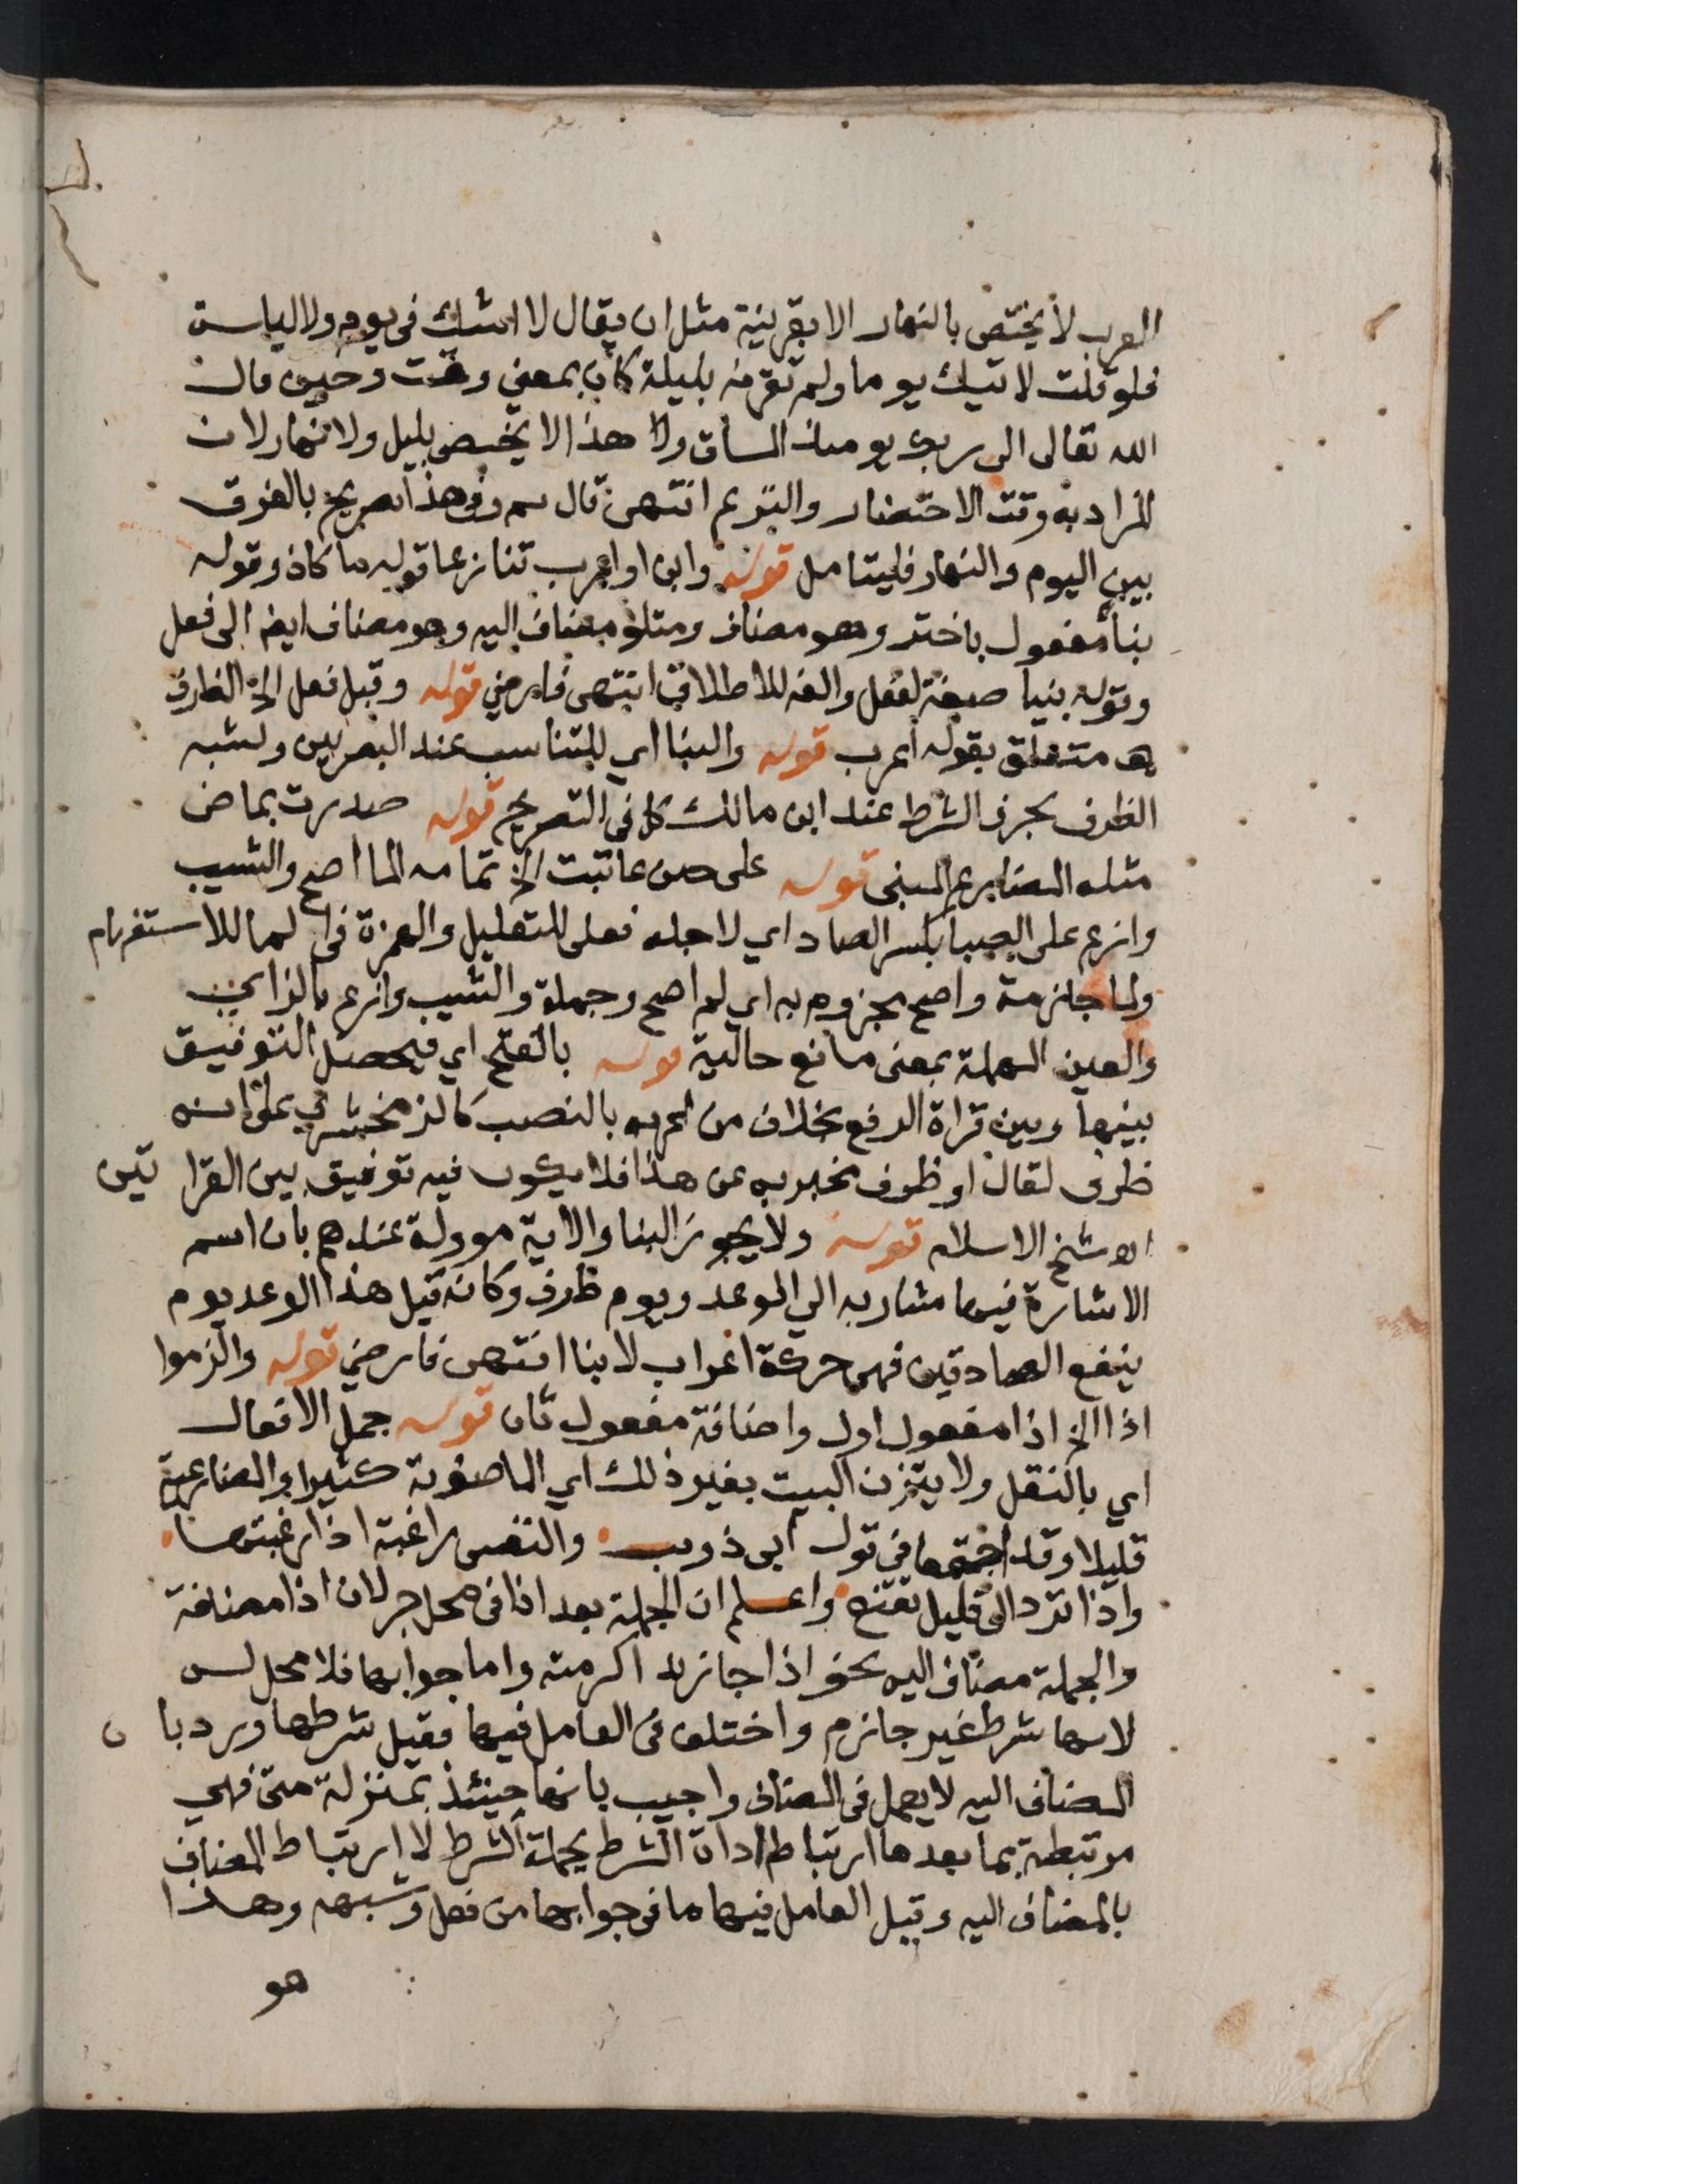 العرب لا يختص بالنهار الا بقرينة مثل ان يقال لا اتيتك في يوم ولا ليلة
فلو قلت لاتيك يوما ولم تقرنه بليلة كان بمعني وقت وحين قال
الله تعالى الى ربك يومئذ المساق ولا هذا لا يختص بليل ولا نهار لان
المراد به وقت الاحتضار والنزع انتهى قال سم وفي هذا تصريح بالفرق
بين اليوم والنهار فليتامل قوله وابن او اعرب تنازعا قوله ما كاذ وقوله
بنا مفعول باختر وهو مضاف ومتلو مضاف اليه وهو مضاف ايضا الى فعل
وقوله بنيا صيغة لفعل والفه للاطلاق انتهى فارضي قوله وقبل فعل الخ الظرف
متعلق بقوله اعرب قوله والبنا اي للتناسب عند البصريين ولشبه
الظرف بحرف الشرط عند ابن مالك كما في التصريح قوله صدرت بماض
مثله المضارع المبني قوله على حين عاتبت الخ تمامه الما اصح والشيب
وازع على الصبا بكسر الصاد اي لاجله فعلى للتعليل والهمزة في الما للاستفهام
ولما جازمة واصح مجزوم به اي لم اصح وجملة والشيب وازع بالزاي
والعين المهملة بمعنى مانع حالية قوله بالفتح اي فيحصل التوفيق
بينها وبين قراة الرفع بخلاف من اعربه بالنصب كالزمخشري على انه
ظرف لقال او ظرف مخبر به عن هذا فلا يكون فيه توفيق بين القراتين
شيخ الاسلام قوله ولا يجوز البنا والاية موولة عندهم بان اسم
الاشارة فيها مشار به الي الوعد ويوم ظرف وكانه قيل هذا الوعد يوم
ينفع الصادقين فهي حركة اعراب لا بنا انتهى فارضي قوله والزموا
اذا الخ اذا مفعول اول واضافة مفعول ثان قوله جمل الافعال
اي بالنقل ولا يتزن البيت بغير ذلك اي الماضوية كثيرا والمضارعية
قليلا وقد اجتمعا في قول ابي ذويب والنفس راغبة اذا رغبتها
واذا ترد الى قليل تقنع واعلم ان الجملة بعد اذا في محل جر لان اذا مضافة
والجملة مضاف اليه نحو اذا جا زيد اكرمته واما جوابها فلا محل له
لانها شرط غير جازم واختلف في العامل فيها فقيل شرطها ورد بان
المضاف اليه لا يعمل في المضاف واجيب بانها حينئذ بمنزلة متى فهي
مرتبطة بما بعدها ارتباط اداة الشرط بجملة الشرط لا ارتباط المضاف
بالمضاف اليه وقيل العامل فيها ما في جوابها من فعل وشبهه وهذا
هو